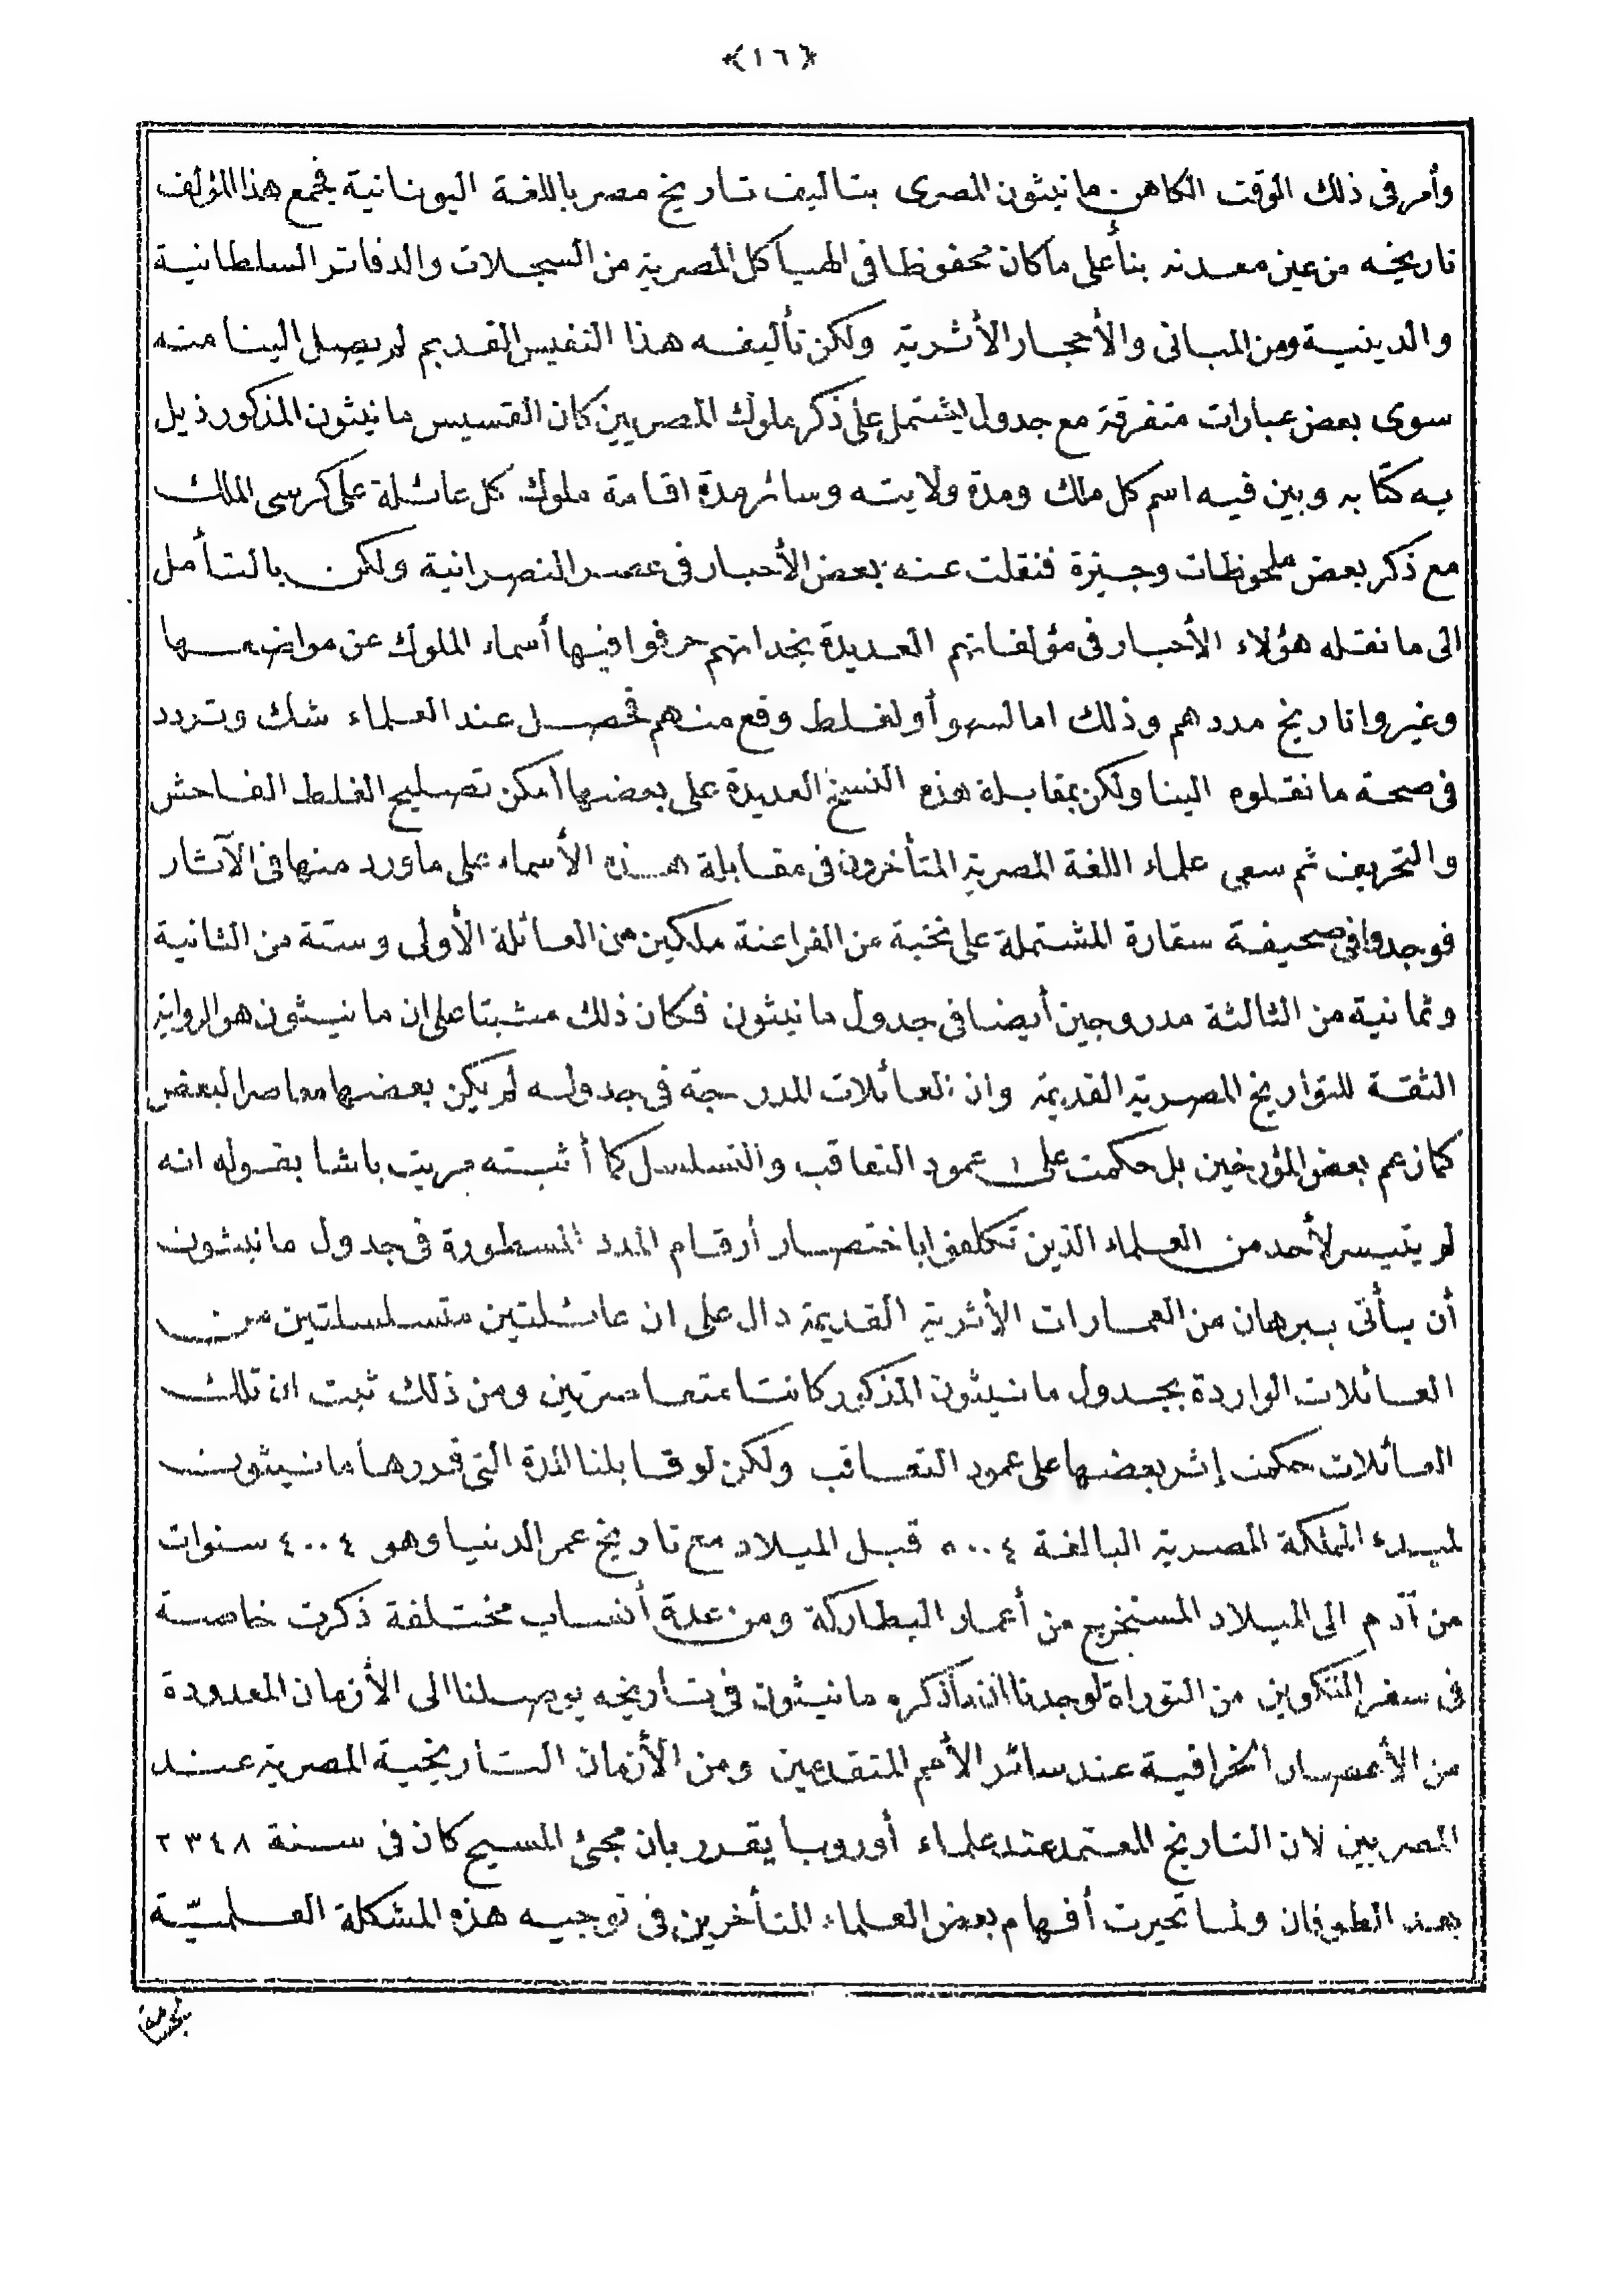 ﴿١٦﴾
وأمر فى ذلك الوقت الكاهن مانيثون المصرى بتاليف تاريخ مصر باللغة اليونانية فجمع هذا المؤلف
تاريخه من عين معدنه بنأ على ما كان محفوظا فى الهياكل المصرية من السجلات والدفاتر السلطانية
والدينية ومن المبانى والأحجار الأثرية ولكن تأليفه هذا النفيس القديم لم يصل الينا منه
سوى بعض عبارات متفرقة مع جدول يشتمل على ذكر ملوك المصريين كان القسيس مانيثون المذكور ذيل
به كتابه وبين فيه اسم كل ملك ومدة ولايته وسائر مدة اقامة ملوك كل عائلة على كرسى الملك
مع ذكر بعض ملحوظات وجيزة فنقلت عنه بعض الأحبار فى عصر النصرانية ولكن بالتأمل
الى ما نقله هؤلاء الأحبار فى مؤلفاتهم العديدة نجد انهم حرفوا فيها أسماء الملوك عن مواضعها
وغيروا تاريخ مددهم وذلك اما لسهو أو لغلط وقع منهم فحصل عند العلماء شك وتردد
فى صحة ما نقلوه الينا ولكن بمقابلة هذه النسخ العديدة على بعضها أمكن تصليح الغلط الفاحش
والتحريف ثم سعى علماء اللغة المصرية المتأخرون فى مقابلة هذه الأسماء على ماورد منها فى الآثار
فوجدوا فى صحيفة سقارة المشتملة على نخبة من الفراعنة ملكين من العائلة الأولى وستة من الثانية
وثمانية من الثالثة مدروجين أيضا فى جدول مانيثون فكان ذلك مثبتا على ان مانيثون هو الرواية
الثقة للتواريخ المصرية القديمة وان العائلات المدرجة فى جدوله لم يكن بعضها معاصرا لبعض
كمازعم بعض المؤرخين بل حكمت على عمود التعاقب والتسلسل كما أثبته مريت باشا بقوله انه
لم يتيسر لأحد من العلماء الذين تكلموا باختصار أرقام المدد المسطورة فى جدول مانيثون
أن يأتى ببرهان من العمارات الأثرية القديمة دال على ان عائلتين متسلسلتين من
العائلات الواردة بجدول مانيثون المذكور كانتا متعاصرتين ومن ذلك ثبت ان تلك
العائلات حكمت إثر بعضها على عمود التعاقب ولكن لو قابلنا المدة التى قدرها مانيثون
لمبدء المملكة المصرية البالغة ٥٠٠٤ قبل الميلاد مع تاريخ عمر الدنيا وهو ٤٠٠٤ سنوات
من آدم الى الميلاد المستخرج من أعمار البطاركة ومن عدة أنساب مختلفة ذكرت خاصة
فى سفر التكوين من التوراة لوجدنا ان ماذكره مانيثون فى تأريخه يوصلنا الى الأزمان المعدودة
من الأعصار الخرافية عند سائر الأمم المتقدمين ومن الأزمان التأريخية المصرية عند
المصريين لان التاريخ المعتمد عند علماء أوروبا يقدر بان مجئ المسيح كان فى سنة ٢٣٤٨
بعد الطوفان ولما تحيرت أفهام بعض العلماء المتأخرين فى توجيه هذه المشكلة العلميّة